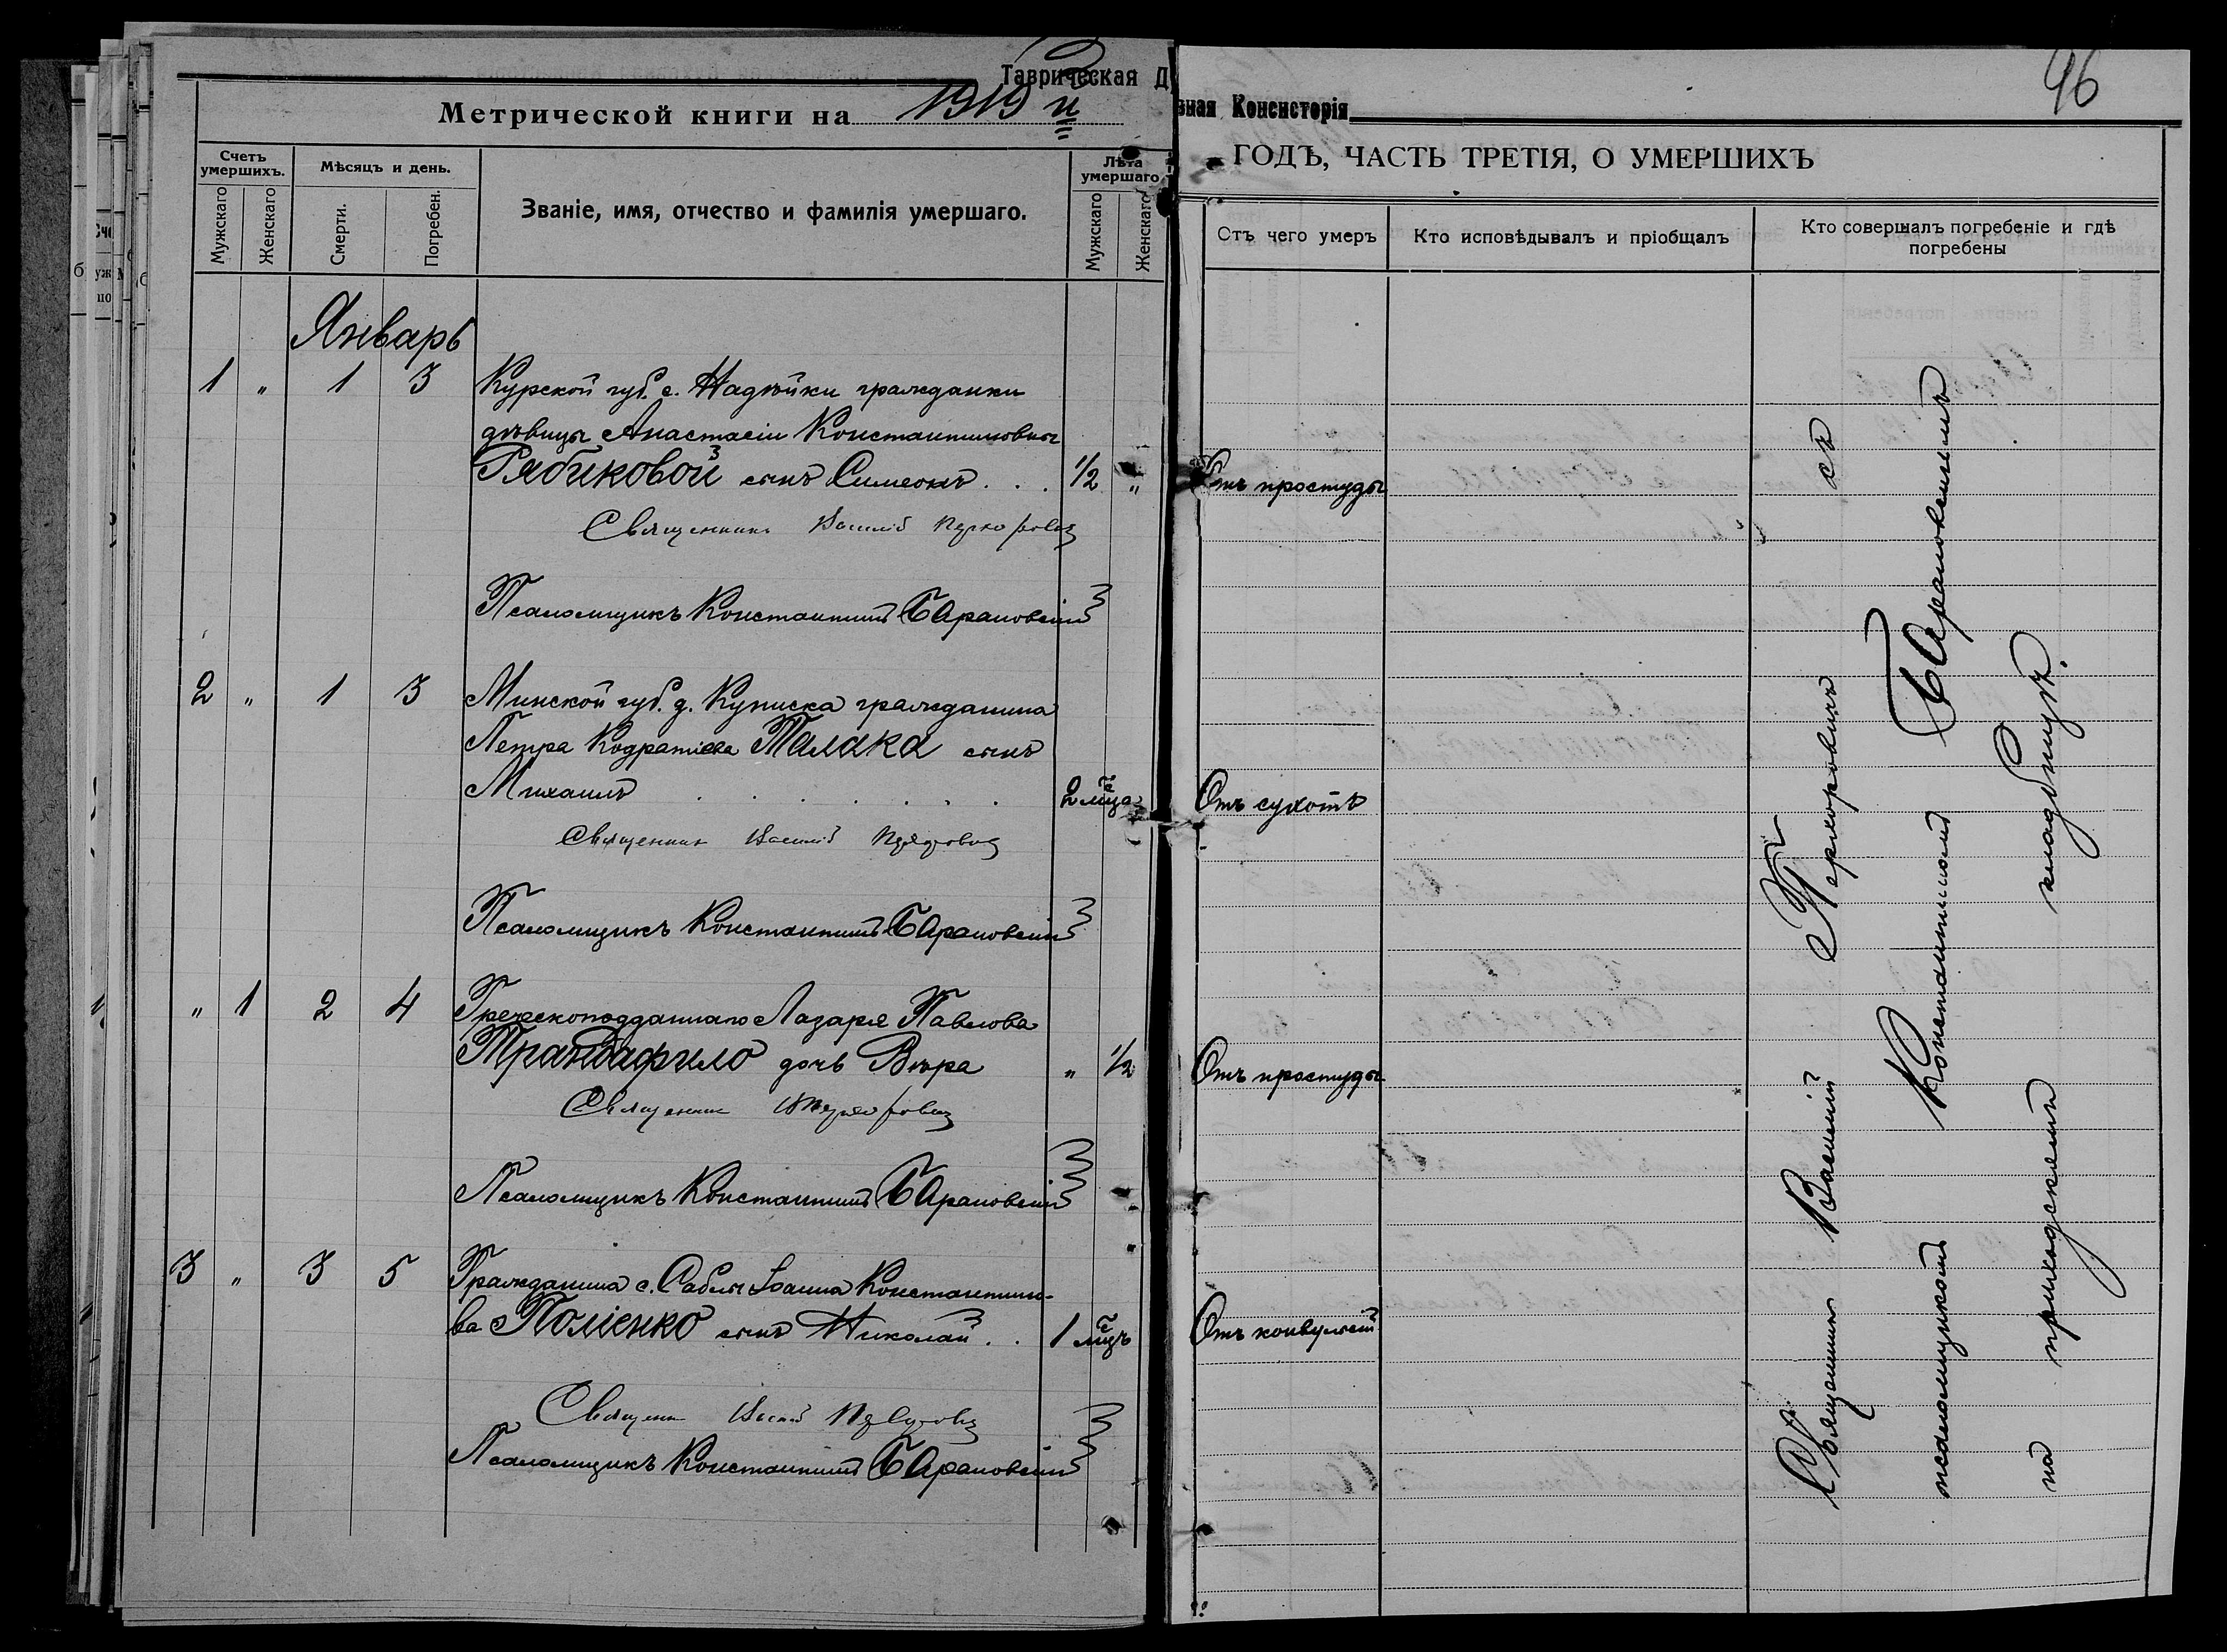 Таврическая Д
Метрической книги на 1919 й
Счетъ умершихъ.
Мужскаго
Женскаго
Мѣсяцъ и день.
Смерти.
Погребен.
Званіе, имя, отчество и фамилія умершаго.
Лѣта умершаго
Мужскаго
Женскаго
Январь
1 " 1 3 Курской губ. с. Надѣйки гражданки
дѣвицы Анастасіи Константиновны
Рябиковой сынъ Симеонъ . . . 1/2 "
Священникъ Василій
Псаломщикъ Константинъ Барановскій
2 " 1 3 Минской губ. д. Куписка гражданина
Петра Кодратіева Талака сынъ
Михаилъ . . . . . . . 2 м̃ца
Священник Василій
Псаломщикъ Константинъ Барановскій
" 1 2 4 Греческоподданнаго Лазаря Павлова
Трандафило дочь Вѣра " 1/2
Священник
Псаломщикъ Константинъ Барановскій
3 " 3 5 Гражданина с. Саблы Іоанна Константино-
ва Поліенко сынъ Николай . . 1 м̃цъ
Псаломщикъ Константинъ Барановскій
96
вная Консисторія
ГОДЪ, ЧАСТЬ ТРЕТІЯ, О УМЕРШИХЪ
Отъ чего умеръ
Кто исповѣдывалъ и пріобщалъ
Кто совершалъ погребеніе и гдѣ
погребены
Отъ простуды
Отъ сухотъ
Отъ простуды
Отъ конвульсій
Священникъ Василій съ
псаломщикомъ Константиномъ Барановскимъ
на приходскомъ кладбищѣ.